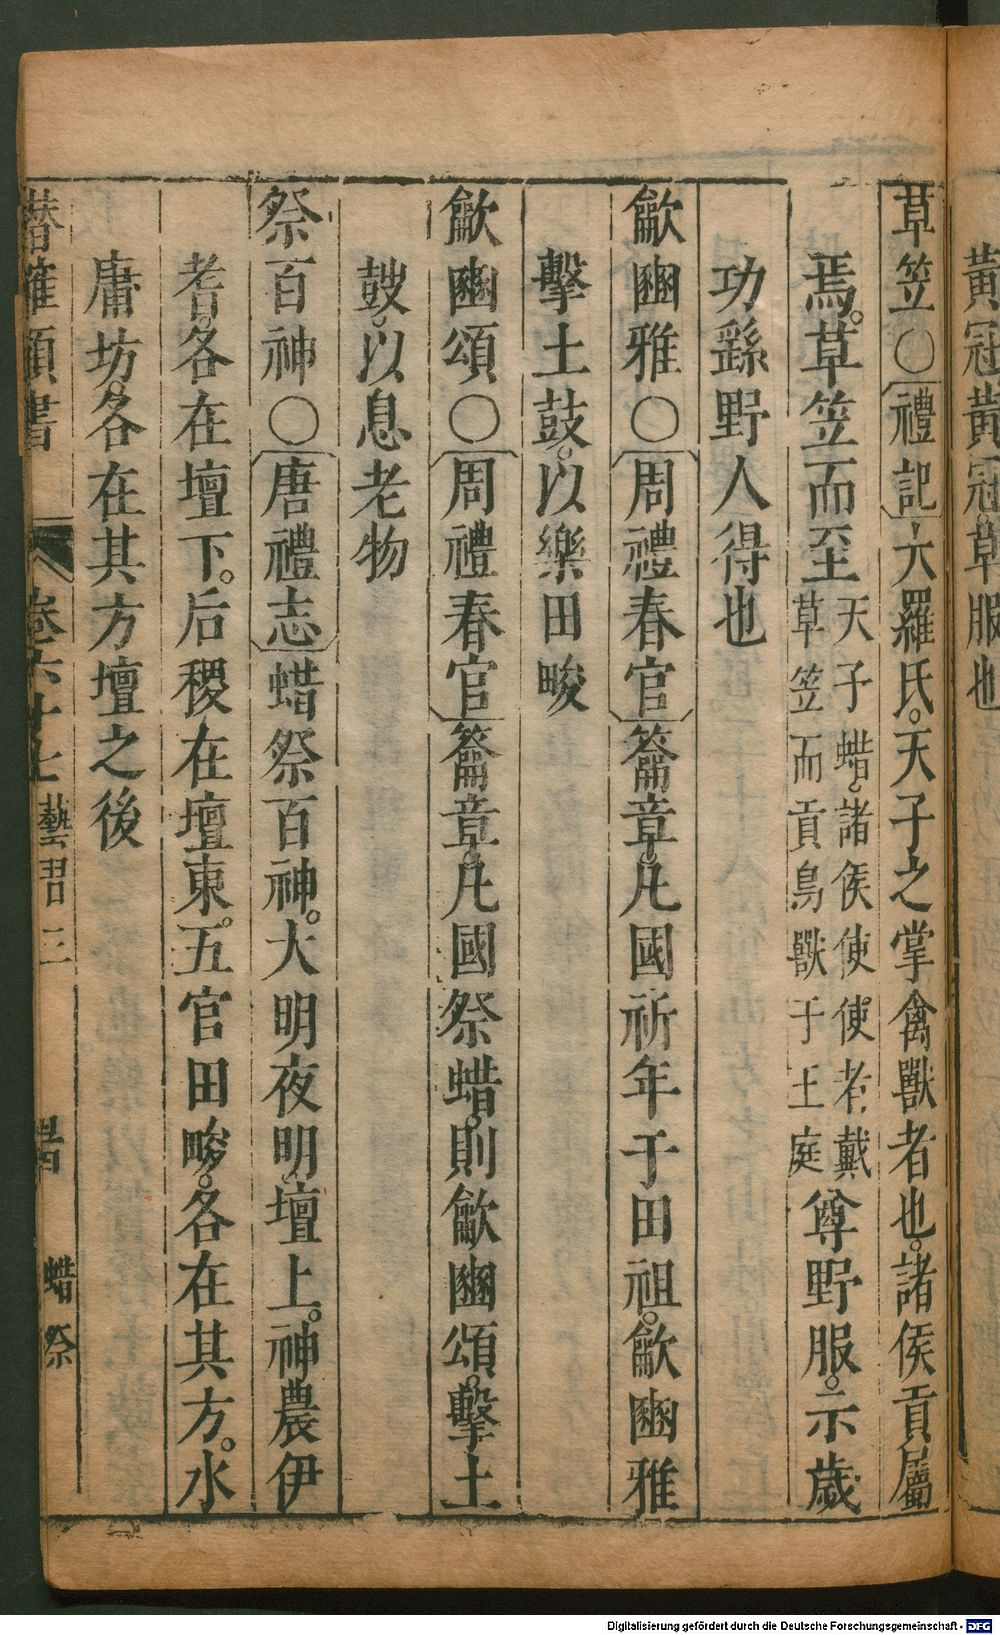 黃冠黃冠草服也
草笠○禮記大羅氏。天子之掌禽獸者也。諸侯貢屬
焉。草笠而至天子蜡。諸侯使使者戴草笠而貢鳥獸于王庭尊野服。示歲
功繇野人得也
龡豳雅○周禮春官籥章。凡國祈年于田祖。龡豳雅
擊土鼓。以樂田畯
龡豳頌○周禮春官籥章。凡國祭蜡。則龡豳頌。擊土
鼓。以息老物
祭百神○唐禮志蜡祭百神。大明夜明。壇上。神農伊
耆。各在壇下。后稷在壇東。五官田畯。各在其方。水
庸坊。各在其方壇之後
潛確類書 卷六十七 藝習三 蜡祭
Digitalisierung gefördert durch die Deutsche Forschungsgemeinschaft - DFG